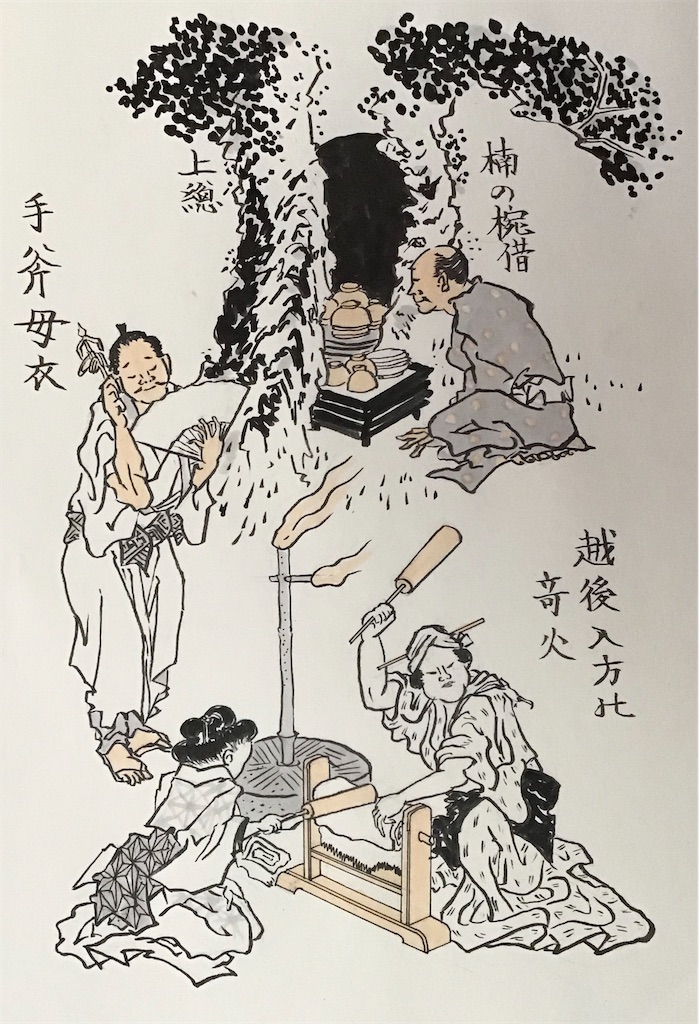 楠の椀借
上總
手斧毋衣
越後入方
竒火